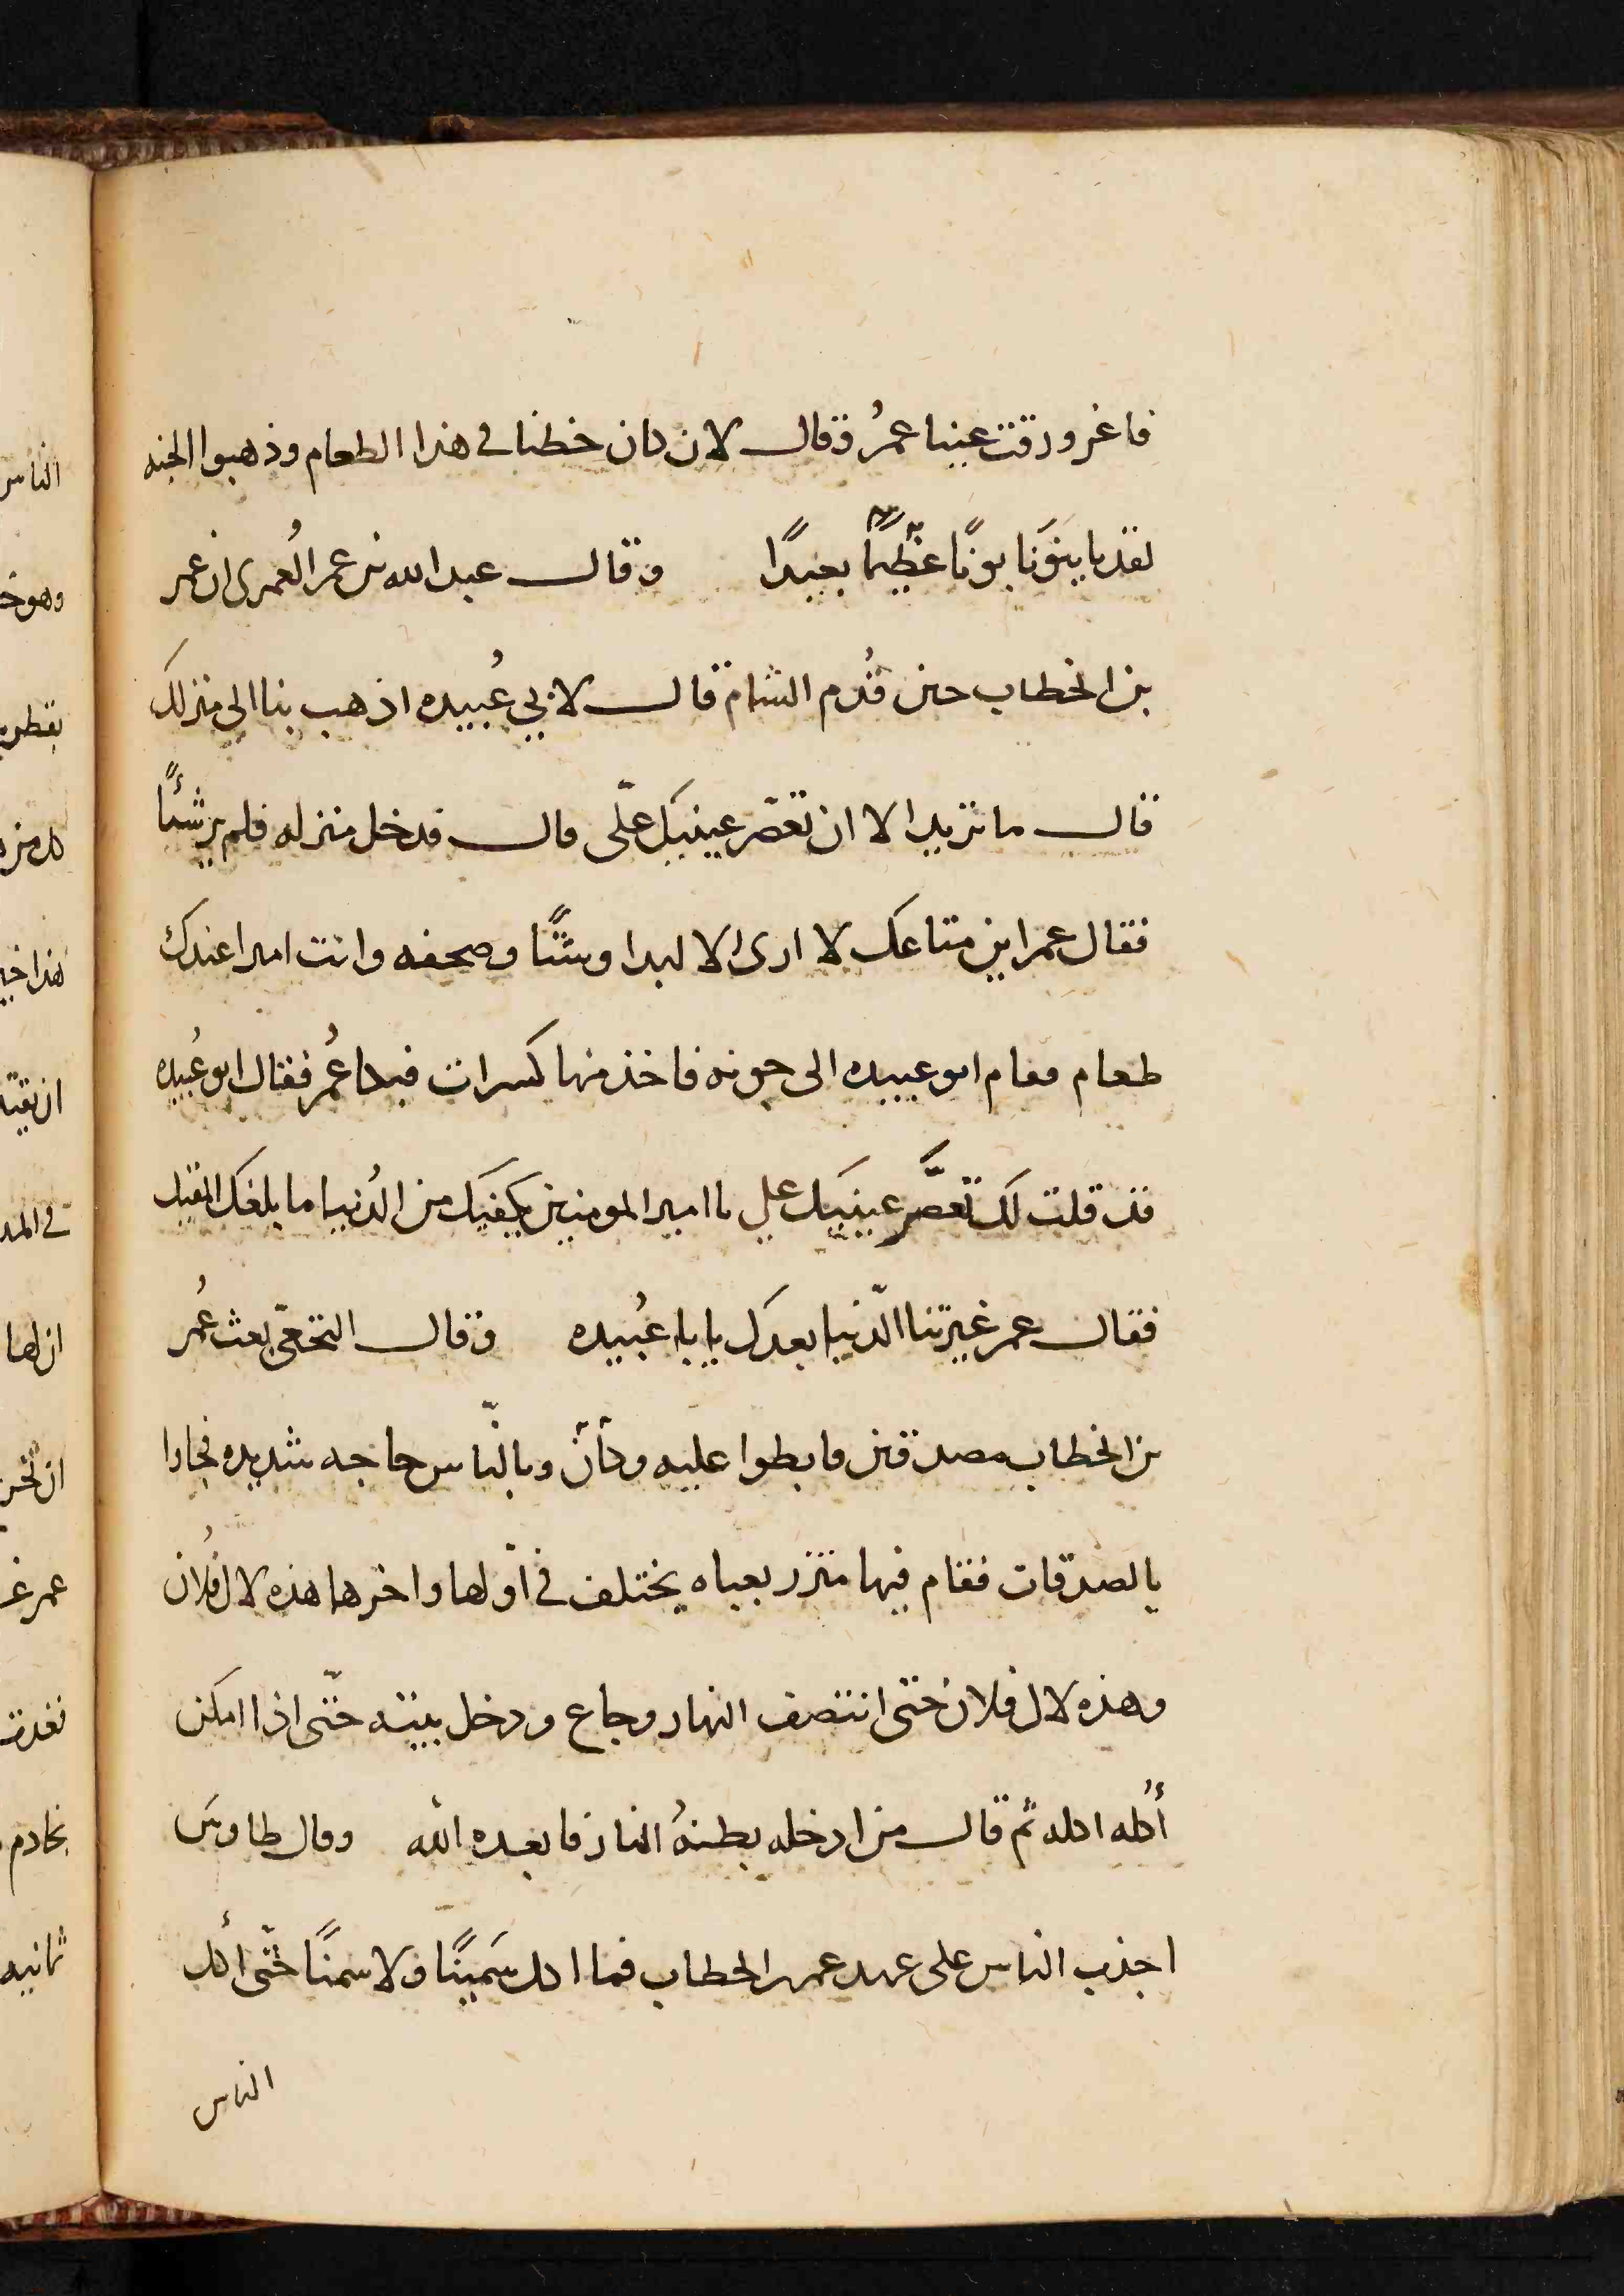 فاغرورقت عينا عمرُ وقال لان كان حظنا فى هذا الطعام وذهبوا بالجنه
لقد باينونا بونًا عظيمًا بعيدًا وقال عبد الله بن عمر العُمرى ان عمر
بن الخطاب حين قدُم الشام قال لابي عُبيده اذهب بنا الى منزلك
قال ما تريد الا ان تعصّر عينيك علّى قال فدخل منزله فلم ير شئًا
فقال عمر اين متاعك لا ارى الا لبدا وشنًّا وصحفه وانت امير اعندك
طعام فقام ابو عبيده الى جونه فاخذ منها كسرات فبكا عُمر فقال ابو عُبيده
قد قلت لك تعصَّر عينيك علي يا امير المومنين يكفيك من الدُنيا ما بلغك المقيل
فقال عمر غيرتنا الدّنيا بعدك يابا عُبيده وقال النخعّي بعث عُمر
بن الخطاب مصدقين فابطوا عليه وكأن وبالنّاس حاجه شديده فجاوا
بالصدقات فقام فيها متزر بعباه يختلف في اوّلها واخرها هذه لال فُلان
وهذه لال فلان حتى انتصف النهار وجاع ودخل بيته حتّى اذا امكن
أُكله اكله ثم قال من ادخله بطنهُ النار فابعده الله وقال طاوس
اجذب الناس على عهد عمر بن الخطاب فما اكل سَمينًا ولا سمنًا حتّى أكل
الناس
الناس
ثمانيه